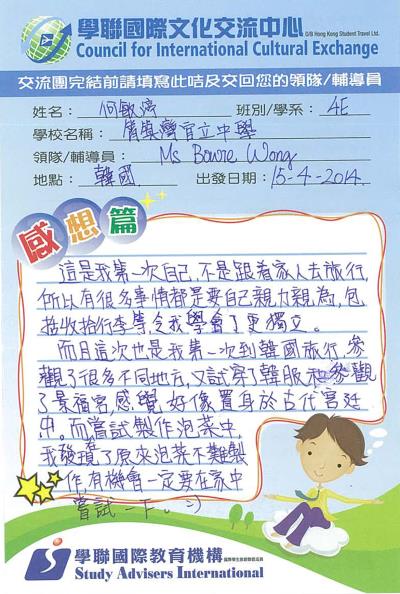 學聯國際文化交流中心
O/B Hong Kong Student Travel Ltd.
Council for International Cultural Exchange
交流團完結前請填寫此咭及交回您的領隊/輔導員
姓名：何敏婷 班別/學系：4E
學校名稱：筲箕灣官立中學
領隊/輔導員：Ms Bowie Wong
地點：韓國 出發日期：15-4-2014
感想篇
這是我第一次自己，不是跟着家人去旅行，
所以有很多事情都是要自己親力親為，包
括收拾行李等，令我學會了更獨立。
而且這次也是我第一次到韓國旅行，參
觀了很多不同地方，又試穿了韓服和參觀
了景福宮，感覺好像置身於古代宮廷
中。而嘗試製作泡菜中，
我發現了原來泡菜不難製
作，有機會一定要在家中
嘗試一下。:)
學聯國際教育機構
Study Advisers International